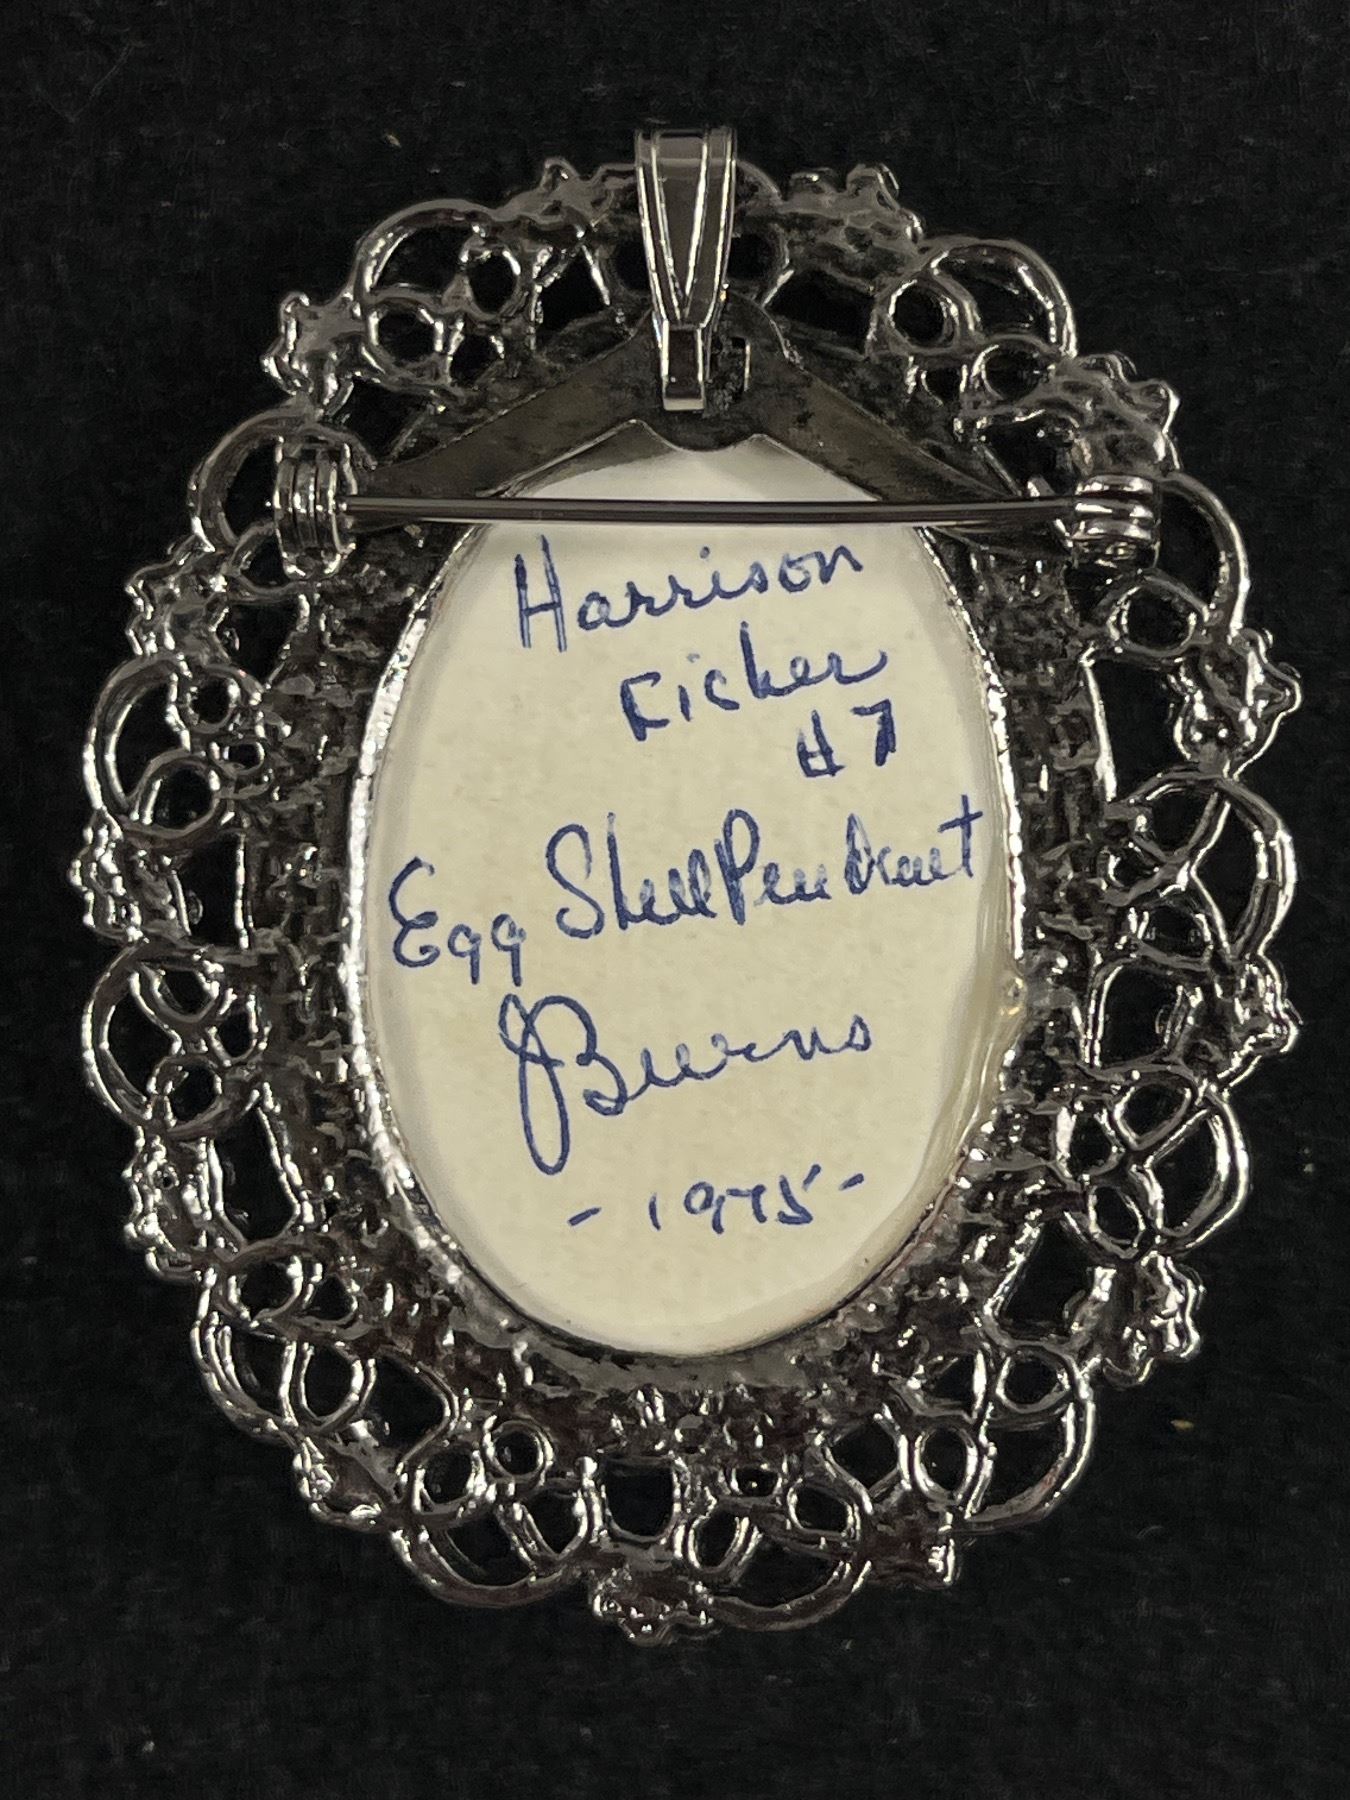 Harrison
Fisher
#7
Egg Shell Pendant
J Burns
- 1975 -